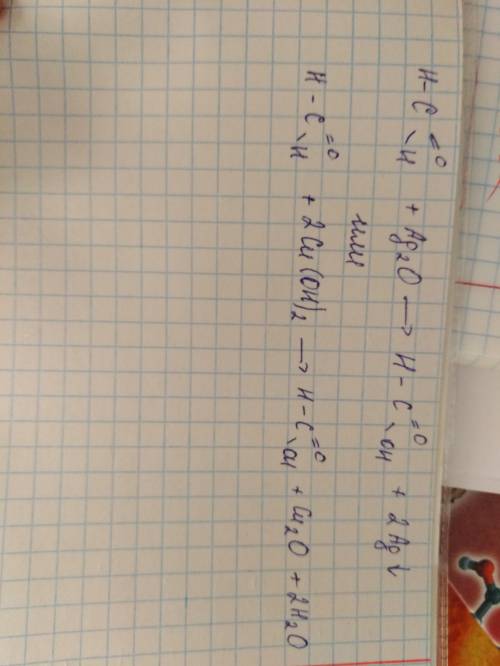 H-C=O
\H + Ag₂O → H-C=O
\OH + 2Ag↓
или
H-C=O
\H + 2Cu(OH)₂ → H-C=O
\OH + Cu₂O + 2H₂O